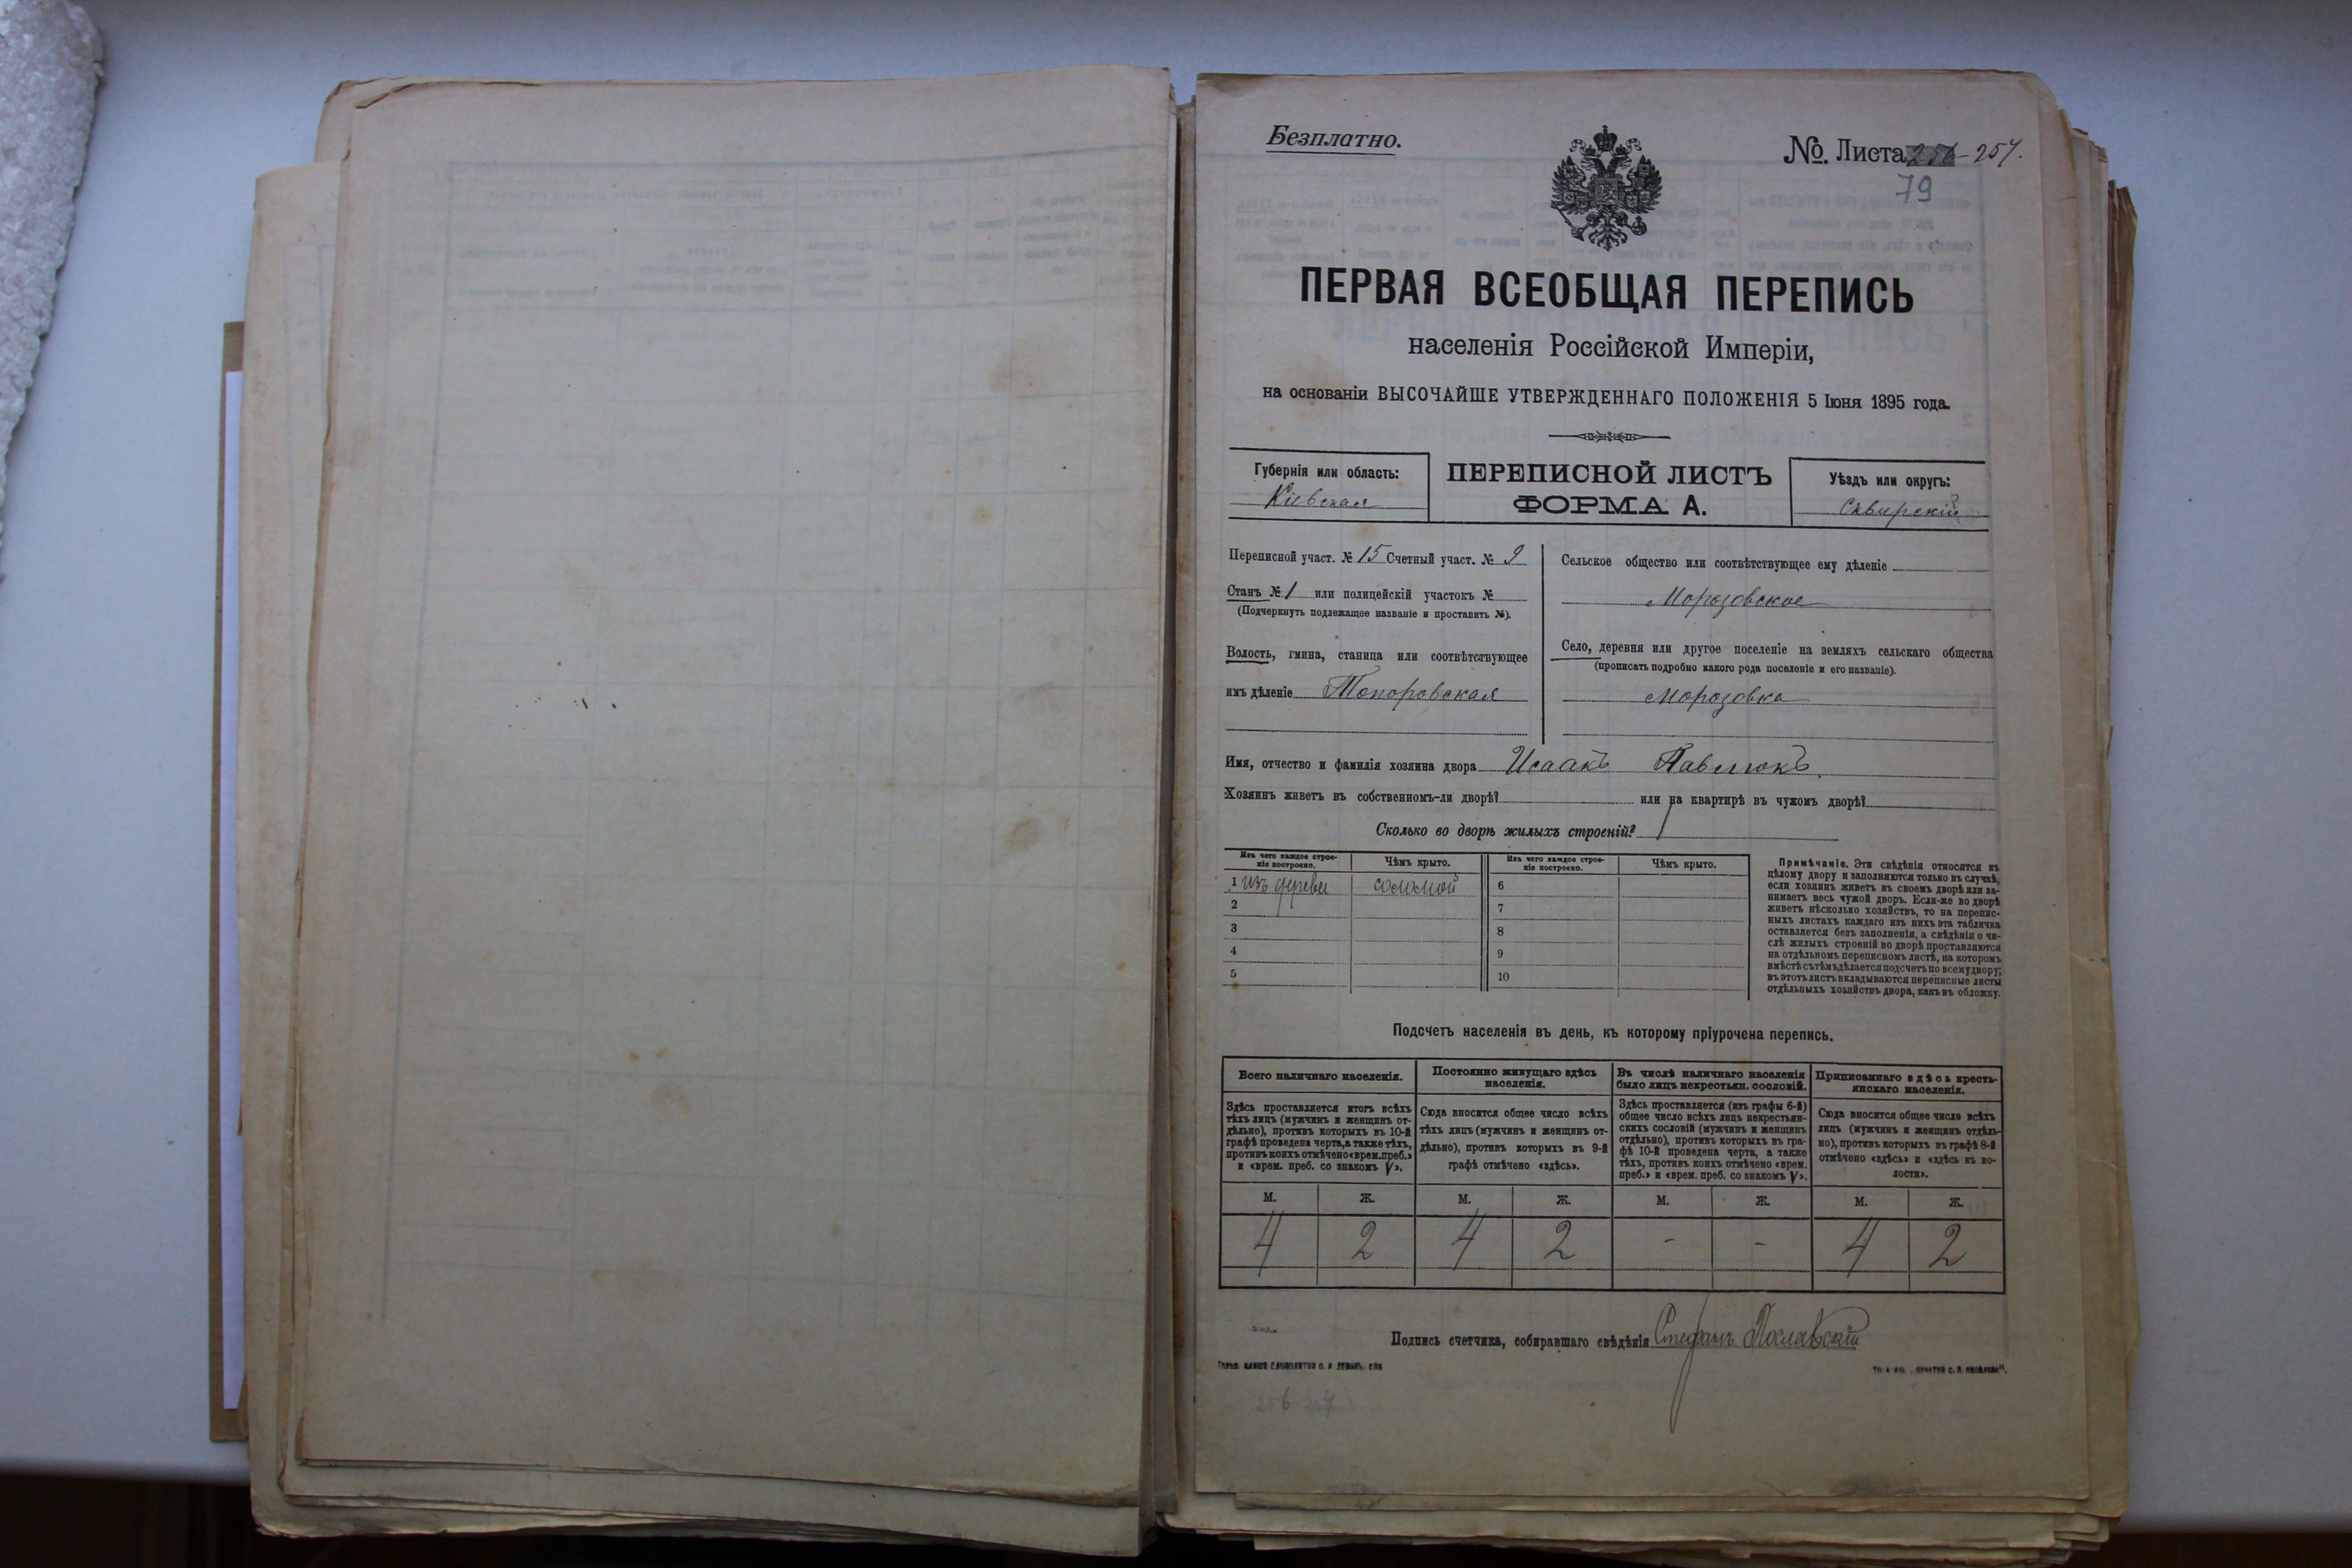 Безплатно.
№. Листа 256-257.
79
ПЕРВАЯ ВСЕОБЩАЯ ПЕРЕПИСЬ
населенія Россійской Имперіи,
на основаніи ВЫСОЧАЙШЕ УТВЕРЖДЕННАГО ПОЛОЖЕНІЯ 5 Іюня 1895 года.
Губернія или область:
Кіевская
ПЕРЕПИСНОЙ ЛИСТЪ
ФОРМА А.
Уѣздъ или округъ:
Сквирскій
Переписной участ. № 15 Счетный участ. № 9
Станъ № 1 или полицейскій участокъ №
(Подчеркнуть подлежащее названіе и проставить №).
Волость, гмина, станица или соотвѣтствующее
имъ дѣленіе Топоровская
Сельское общество или соотвѣтствующее ему дѣленіе
Морозовское
Село, деревня или другое поселеніе на земляхъ сельскаго общества
(прописать подробно какого рода поселеніе и его названіе).
Морозовка
Имя, отчество и фамилія хозяина двора Исаакъ Павлюкъ
Хозяинъ живетъ въ собственномъ-ли дворѣ? или на квартирѣ въ чужомъ дворѣ?
Сколько во дворѣ жилыхъ строеній? 1
Изъ чего каждое строе-
ніе построено.
Чѣмъ крыто.
1 изъ дерева соломой
2
3
4
5
Изъ чего каждое строе-
ніе построено.
Чѣмъ крыто.
6
7
8
9
10
Примѣчаніе. Эти свѣдѣнія относятся къ
цѣлому двору и заполняются только въ случаѣ,
если хозяинъ живетъ въ своемъ дворѣ или за-
нимаетъ весь чужой дворъ. Если-же во дворѣ
живетъ нѣсколько хозяйствъ, то на перепис-
ныхъ листахъ каждаго изъ нихъ эта табличка
оставляется безъ заполненія, а свѣдѣнія о чи-
слѣ жилыхъ строеній во дворѣ проставляются
на отдѣльномъ переписномъ листѣ, на которомъ
вмѣстѣ съ тѣмъ дѣлается подсчетъ по всему двору;
въ этотъ листъ вкладываются переписные листы
отдѣльныхъ хозяйствъ двора, какъ въ обложку.
Подсчетъ населенія въ день, къ которому пріурочена перепись.
Всего наличнаго населенія.
Здѣсь проставляется итогъ всѣхъ
тѣхъ лицъ (мужчинъ и женщинъ от-
дѣльно), противъ которыхъ въ 10-й
графѣ проведена черта, а также тѣхъ,
противъ коихъ отмѣчено «врем. преб.»
и «врем. преб. со знакомъ V».
Постоянно живущаго здѣсь
населенія.
Сюда вносится общее число всѣхъ
тѣхъ лицъ (мужчинъ и женщинъ от-
дѣльно), противъ которыхъ въ 9-й
графѣ отмѣчено «здѣсь».
Въ числѣ наличнаго населенія
было лицъ некрестьян. сословій.
Здѣсь проставляется (изъ графы 6-й)
общее число всѣхъ лицъ некрестьян-
скихъ сословій (мужчинъ и женщинъ
отдѣльно), противъ которыхъ въ гра-
фѣ 10-й проведена черта, а также
тѣхъ, противъ коихъ отмѣчено «врем.
преб.» и «врем. преб. со знакомъ V».
Приписаннаго здѣсь кресть-
янскаго населенія.
Сюда вносится общее число всѣхъ
лицъ (мужчинъ и женщинъ отдѣль-
но), противъ которыхъ въ графѣ 8-й
отмѣчено «здѣсь» и «здѣсь къ во-
лости».
М. Ж. М. Ж. М. Ж. М. Ж.
4 2 4 2 - - 4 2
Подпись счетчика, собиравшаго свѣдѣнія Стефанъ Пославскій